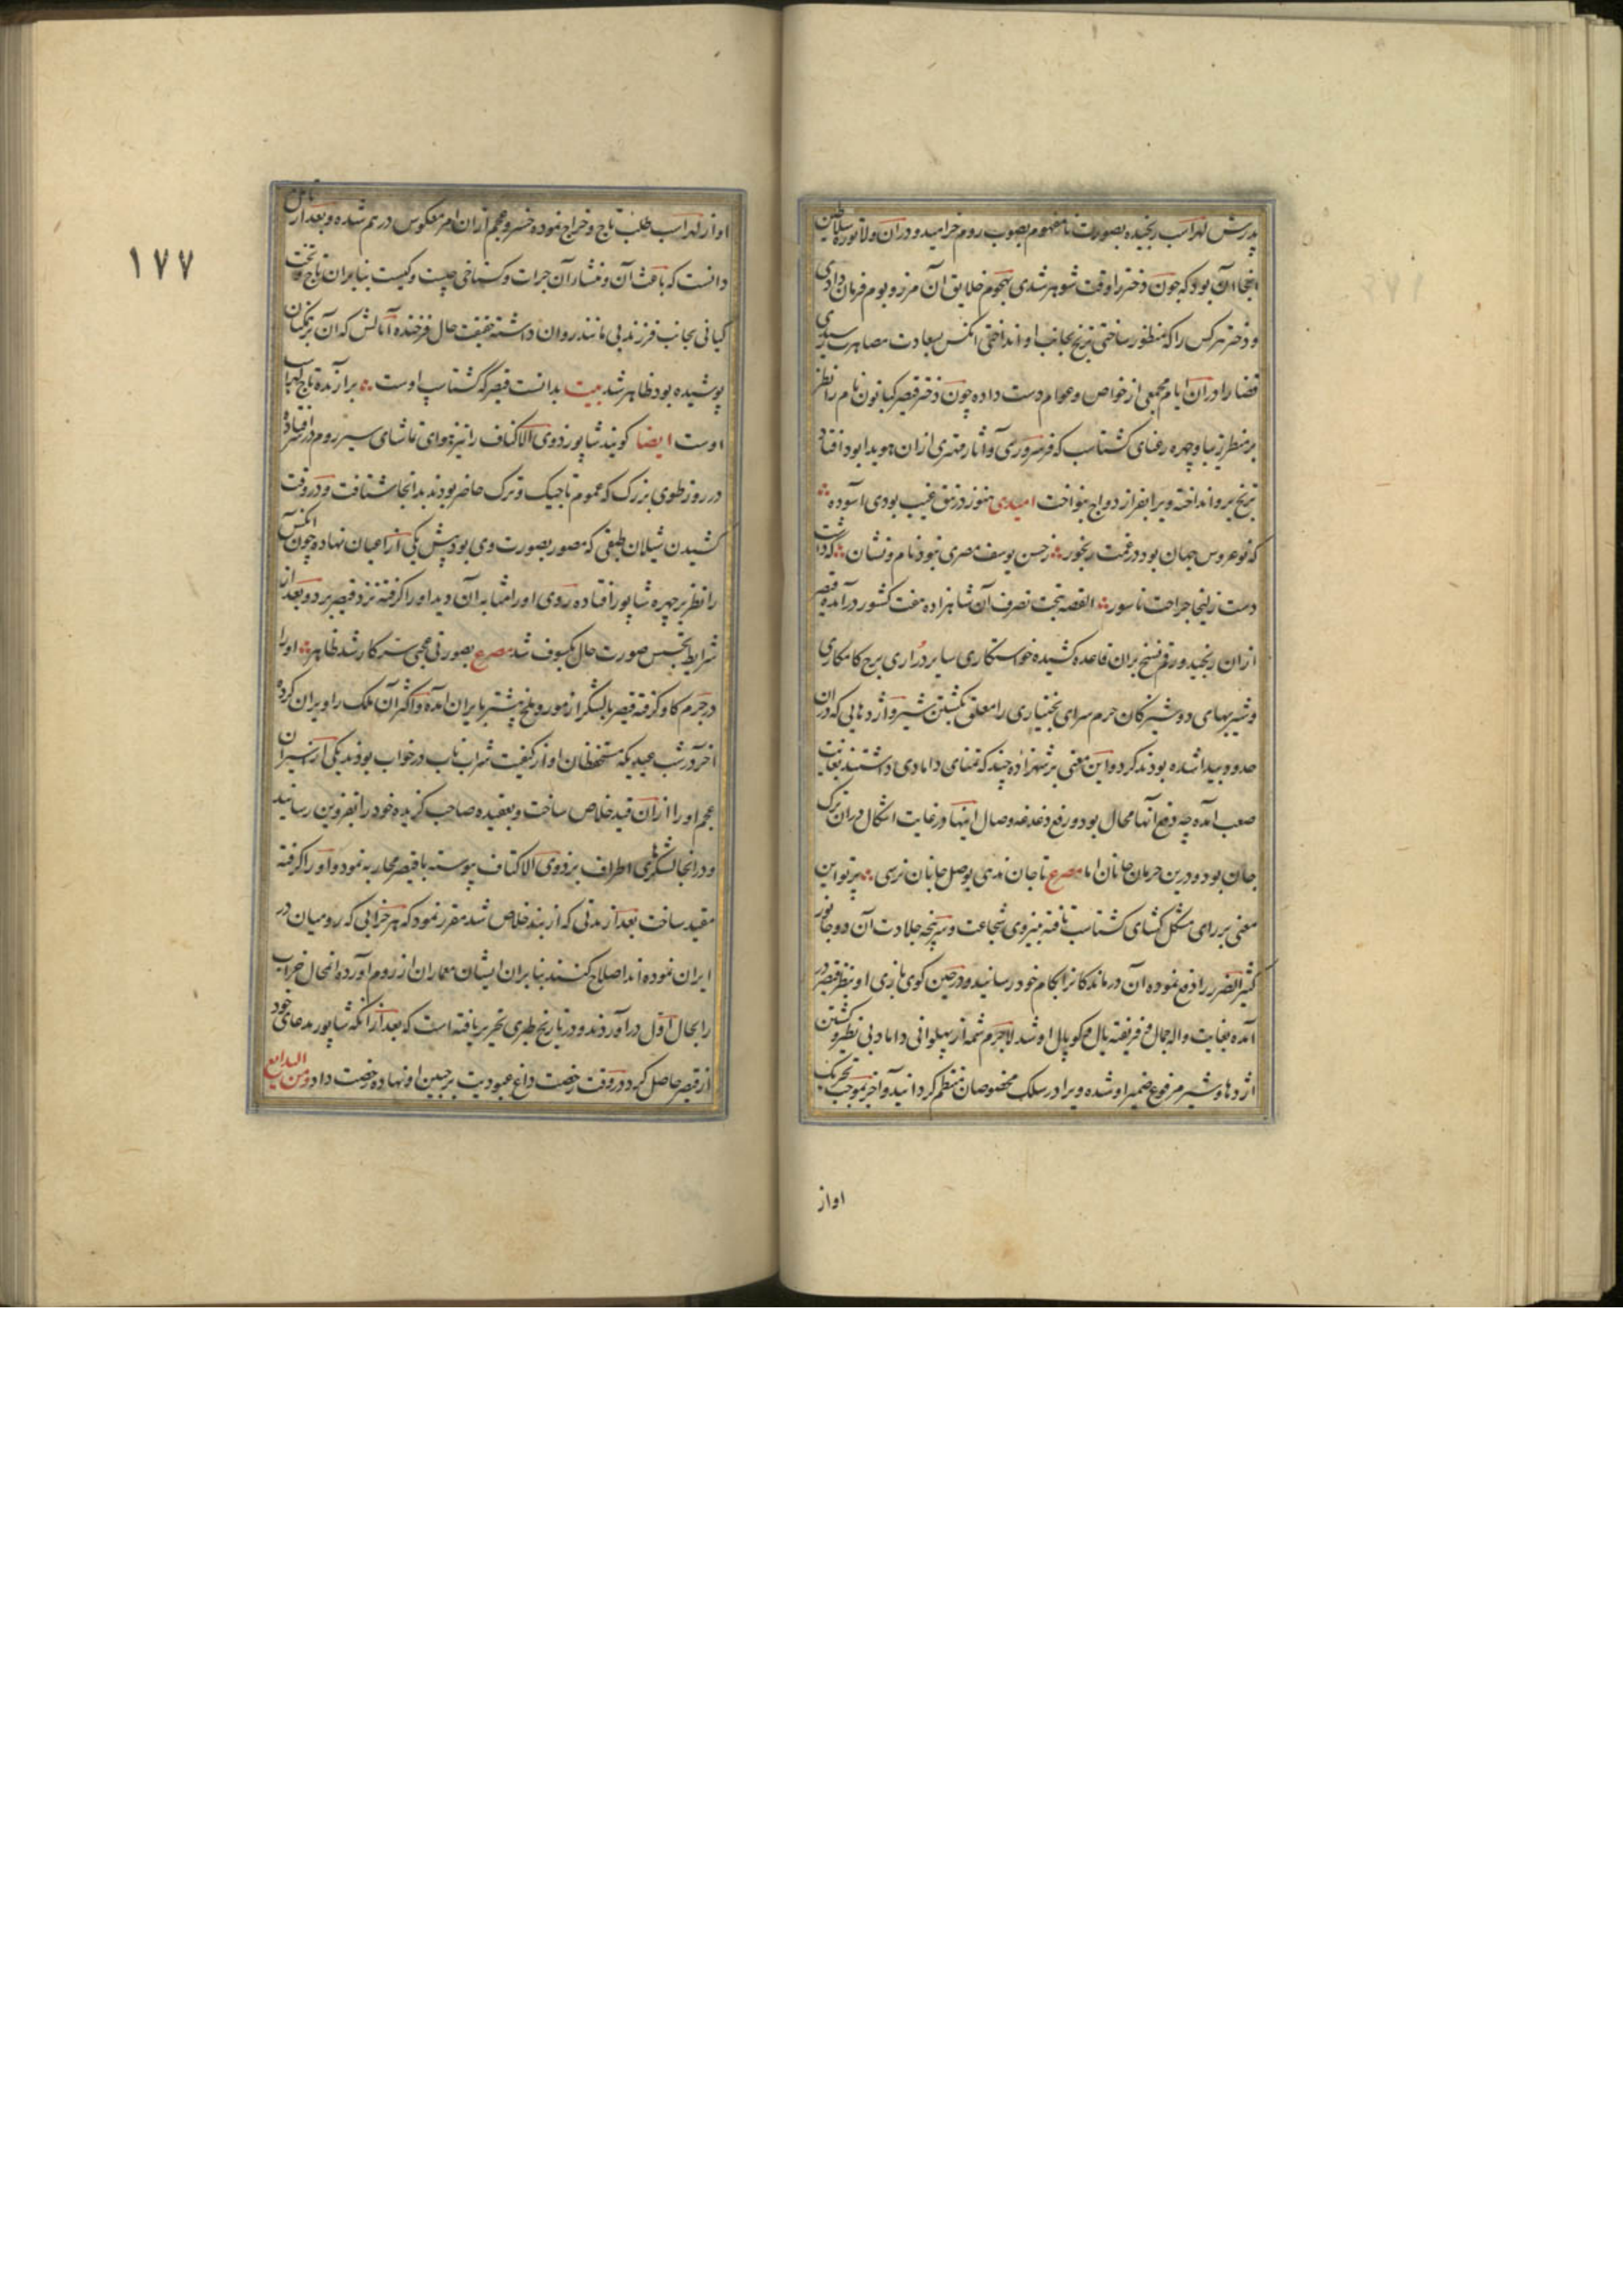 پدرش لهراسب رنجیده بصورت نامفهوم بصوب روم خرامید و دران ولا توره سلاطین
انجا آن بود که چون دختر را وقت شوهر شدی بهجوم خلایق آن مرز و بوم فرمان دادی
و دختر هر کس را که منظور ساختی ترنج بجانب او انداختی انکس بسعادت مصاهرت رسیدی
قضا را دران ایام مجمعی از خواص و عوام دست داده چون دختر قیصر کتایون نام را نظر
بر منظر زیبا و چهره رعنای کشتاسب که فر سروری و آثار مهتری ازان هویدا بود افتاد
ترنج برو انداخته ویرا بفر ازدواج بنواخت امیدی هنوز در تتق غیب بودی آسوده
که نوعروس جهان بود در غمت رنجور ز حسن یوسف مصری نبود نام و نشان که داشت
دست زلیخا جراحت ناسور القصه بتحت تصرف آن شاهزاده هفت کشور درآمده قیصر
ازان رنجید و رقم نسخ بران قاعده کشیده خواستکاری سایر دراری برج کامکاری
و شیربهای دوشیزکان حرم سرای بختیاری را معلق بکشتن شیر و اژدهایی که دران
حدود پیدا شده بودند کرد و این معنی بر شهزاده چند که تمنای دامادی داشتند بغایت
صعب آمده چه دفع آنها محال بود و رفع دغدغه وصال اینها در غایت اشکال دران ترک
جان بود و درین حرمان جانان اما مصرع تا جان ندهی بوصل جانان نرسی پرتو این
معنی بر رای مشکل کشای کشتاسب تافته بنیروی شجاعت و سرپنجه جلادت آن دو جانور
کثیر الضرر را دفع نموده آن درماندکانرا بکام خود رسانید و در حین کوی بازی او بنظر قیصر در
آمده بغایت واله جمال و فریفته یال و کوپال او شد لاجرم شمه از پهلوانی داماد بی نظیر و کشتن
اژدها و شیر مرفوع ضمیر او شده ویرا در سلک مخصوصان منتظم کردانید و آخر بموجب تحریک
اواز
۱۷۷
او از لهراسب طلب تاج و خراج نموده خسرو عجم ازان امر معکوس درهم شده و بعد از تامل
دانست که باعث آن و منشاء آن جرات و کستاخی چیست و کیست بنابران تاج و تخت
کیانی بجانب فرزند بی مانند روان داشته حقیقت حال فرخنده آمالش که آن بر همکنان
پوشیده بود ظاهر شد بیت بدانست قیصر که کشتاسب اوست برازنده تاج لهراسب
اوست ایضا کویند شاپور ذوی الاکتاف را نیز هوای تماشای سیر روم در سر افتاد
در روز طوی بزرک که عموم تاجیک و ترک حاضر بودند بدانجا شتافت و در وقت
کشیدن شیلان طبقی که مصور بصورت وی بود پیش یکی از اعیان نهاده چون انکس
را نظر بر چهره شاپور افتاده روی او را مشابه آن دید او را کرفته نزد قیصر برد و بعد از
شرایط تجسس صورت حال مکشوف شد مصرع بصورتی عجبی سر کار شد ظاهر او را
در جرم کاو کرفته قیصر با لشکر از مور و ملخ بیشتر بایران آمده و اکثر آن ملک را ویران کرده
آخر در شب عیدی که مستحفظان او از کیفیت شراب ناب در خواب بودند یکی از اسیران
عجم او را ازان قید خلاص ساخت و بعقیده صاحب کزیده خود را بقزوین رسانید
و در انجا لشکرهای اطراف بر ذوی الاکتاف پیوسته با قیصر محاربه نمود و او را کرفته
مقید ساخت بعد از مدتی که از بند خلاص شد مقرر نمود که هر خرابی که رومیان در
ایران نموده اند اصلاح کنند بنابران ایشان معماران از روم آورده انمحال خراب
را بحال اول در آوردند و در تاریخ طبری تحریر یافته است که بعد ازانکه شاپور مدعای خود
از قیصر حاصل کرد در وقت رخصت داغ عبودیت بر جبین او نهاده رخصت داد و من البدایع